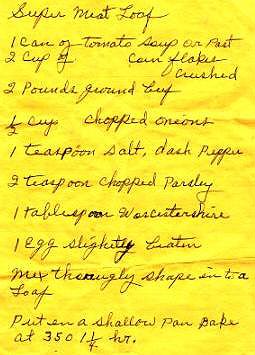 Super Meat Loaf
1 Can of Tomato Soup or Past
2 Cup of Corn flakes
crushed
2 Pounds ground beef
1/2 Cup chopped onions
1 teaspoon salt, dash Pepper
2 teaspoon chopped Parsley
1 tablespoon Worcestershire
1 egg slightly beaten
Mix thougly shape in to a
Loaf
Put in a shallow Pan Bake
at 350 1 1/4 hr.